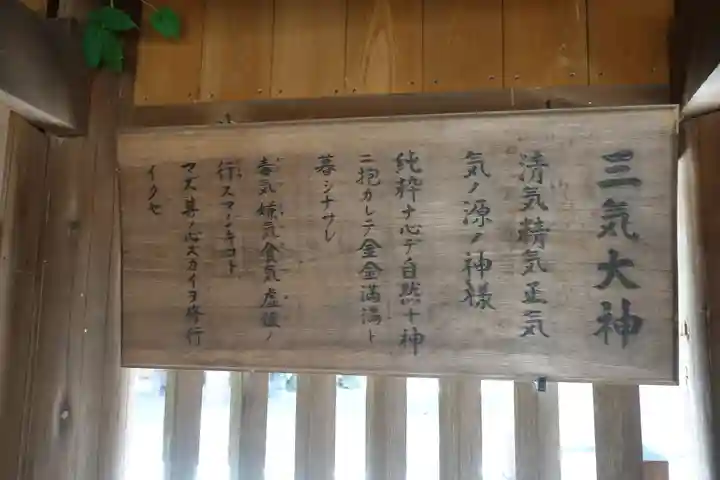 三気大神
清気精気正気
気ノ源ノ神様
純粋ナ心デ自然ト神
ニ抱カレテ金金満満ト
暮シナサレ
毒気嫌気食気虚値ノ
行スマンキコト
マズ尊ノ心スカイヨ修行
イクセ